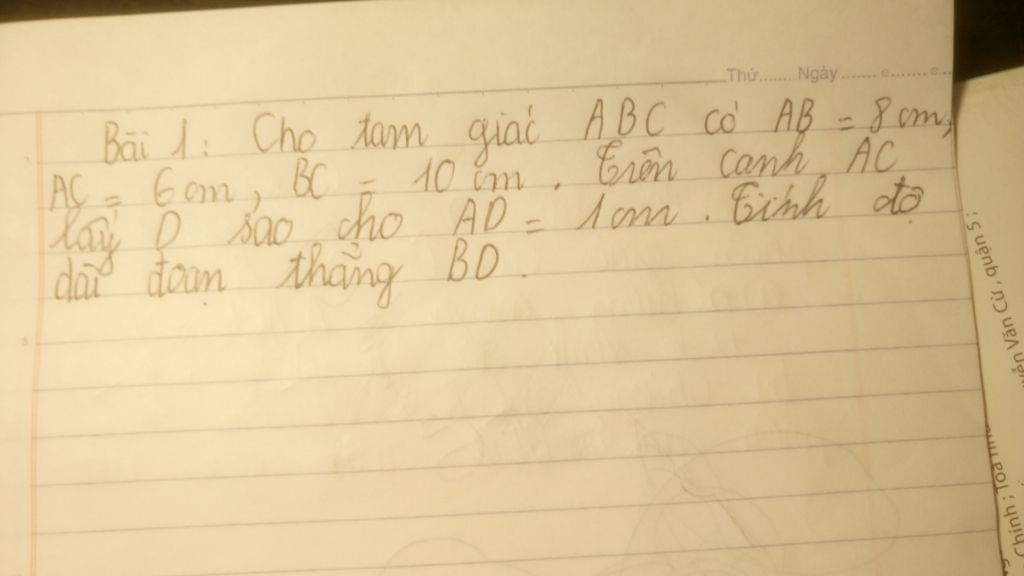 Thứ....... Ngày ....... c ....... c ..
Bài 1: Cho tam giác ABC có AB = 8cm,
AC = 6cm, BC = 10 cm. Trên cạnh AC
lấy D sao cho AD = 1cm. Tính độ
dài đoạn thẳng BD.
Văn Cừ, quận 5;
Chính: